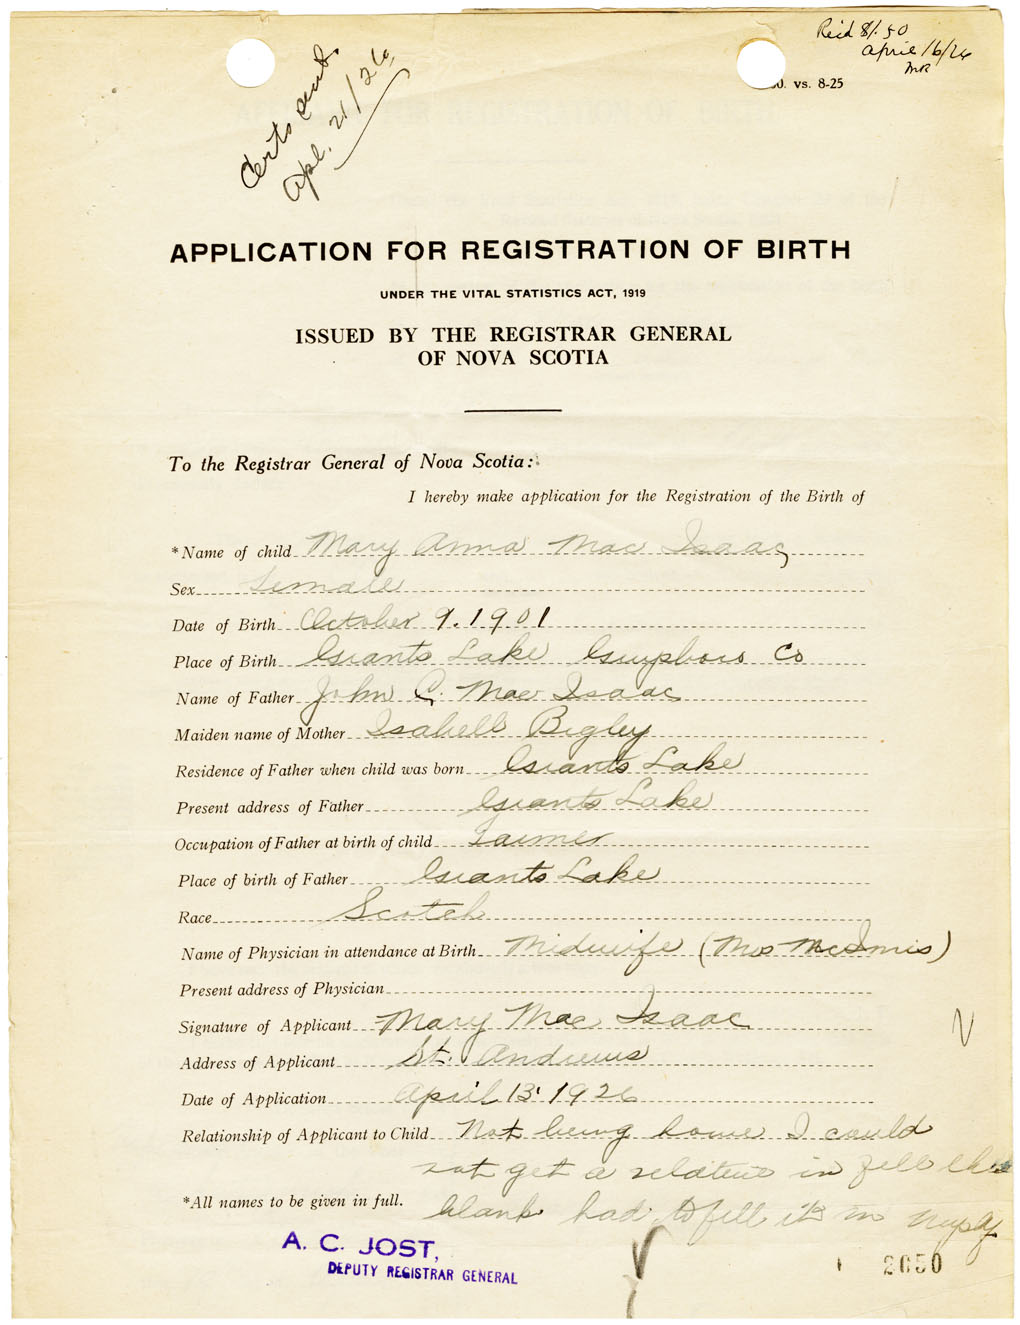 Rec'd $1.50
April 16/26
MR
Certs sent.
Apl. 21/26
vs. 8-25
APPLICATION FOR REGISTRATION OF BIRTH
UNDER THE VITAL STATISTICS ACT, 1919
ISSUED BY THE REGISTRAR GENERAL
OF NOVA SCOTIA
To the Registrar General of Nova Scotia:
I hereby make application for the Registration of the Birth of
*Name of child Mary Anna Mac Isaac
Sex Female
Date of Birth October 9. 1901
Place of Birth Giants Lake Guysboro Co
Name of Father John C. Mac Isaac
Maiden name of Mother Isabell Bigley
Residence of Father when child was born Giants Lake
Present address of Father Giants Lake
Occupation of Father at birth of child Farmer
Place of birth of Father Giants Lake
Race Scotch
Name of Physician in attendance at Birth Midwife (Mrs McInnis)
Present address of Physician
Signature of Applicant Mary Mac Isaac
Address of Applicant St. Andrews
Date of Application April 13 1926
Relationship of Applicant to Child Not being home I could
not get a relative in fill the
*All names to be given in full. blank had to fill it in myself
A. C. JOST,
DEPUTY REGISTRAR GENERAL
2650